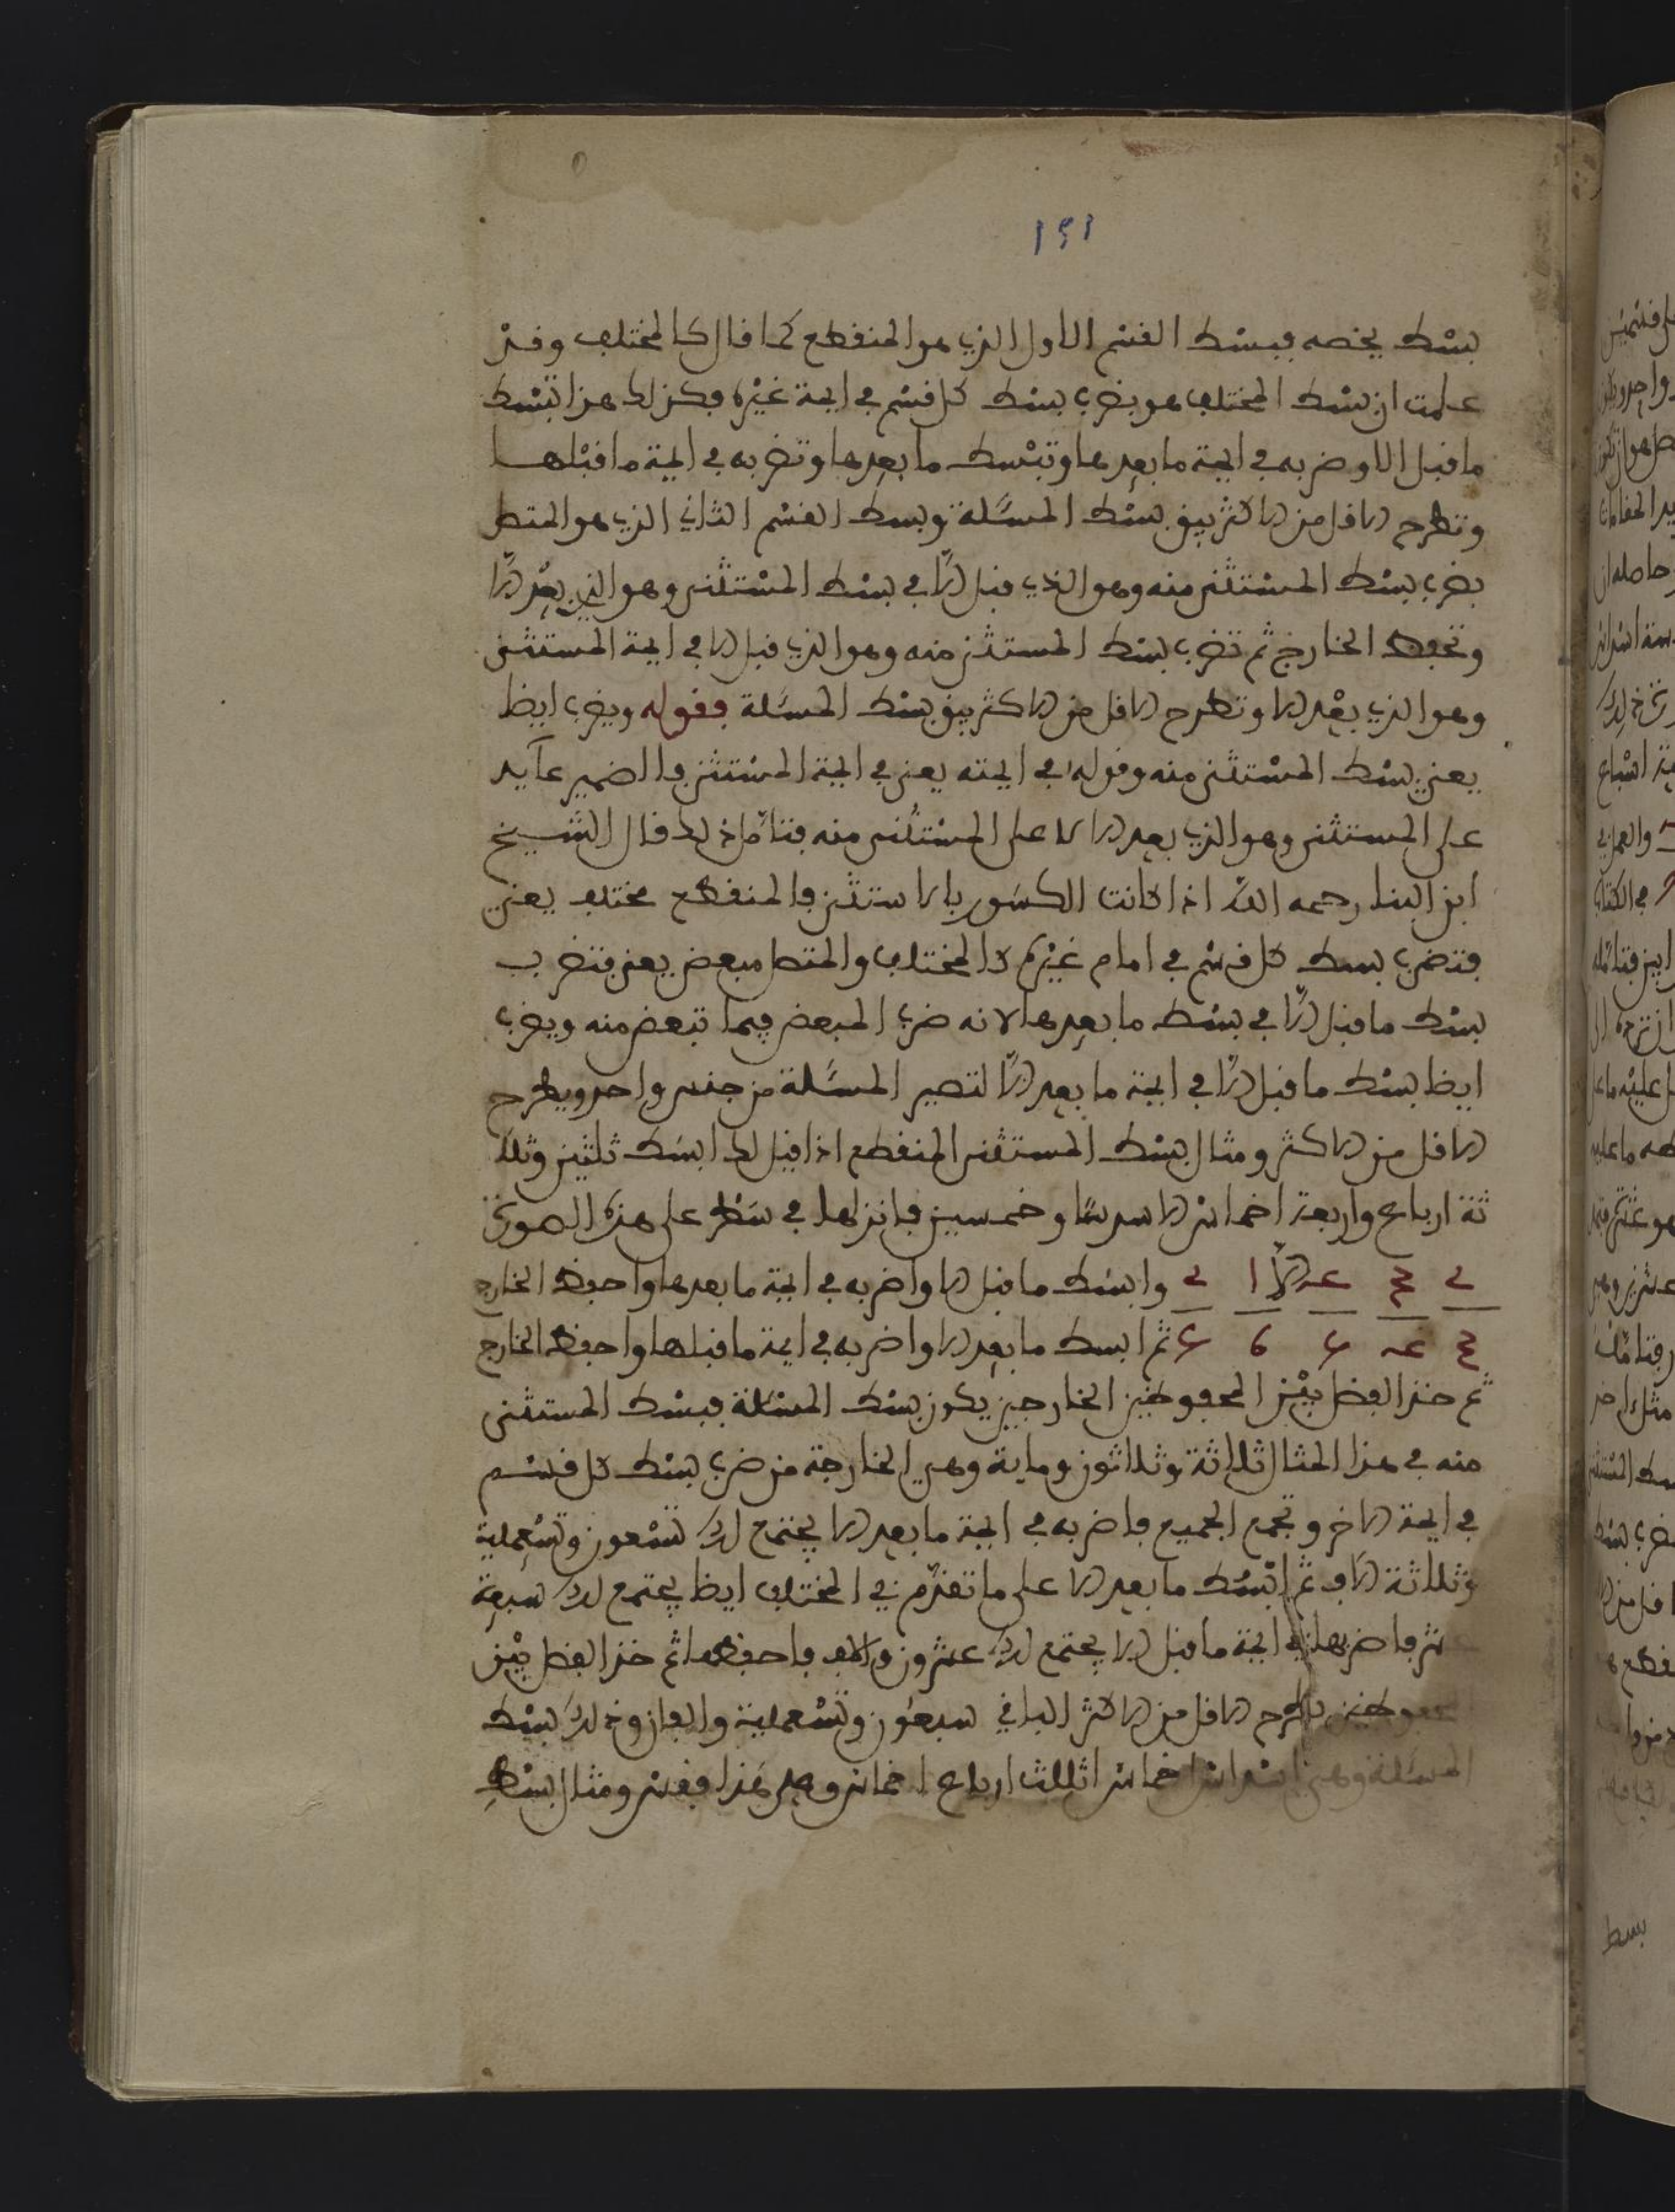 ١٢١
بسط يخصه فبسط القسم الاول الذي هو المنقطع كما قال كالمختلف وقد
علمت ان بسط المختلف هو بضرب بسط كل قسم في ايمة غيره فكذلك هذا تبسط
ما قبل الا وضربه في ايمة ما بعدها وتبسط ما بعدها وتضربه في ايمة ما قبلها
وتطرح الاقل من الاكثر يبق بسط المسئلة وبسط القسم الثاني الذي هو المتصل
بضرب بسط المستثنى منه وهو الذي قبل الا في بسط المستثنى وهو الذي بعد الا
وتحفظ الخارج ثم تضرب بسط المستثنى منه وهو الذي قبل الا في ايمة المستثنى
وهو الذي بعد الا وتطرح الاقل من الاكثر يبق بسط المسئلة فقوله ويضرب ايظا
يعني بسط المستثنى منه وقوله في ايمته يعني في ايمة المستثنى فالضمير عايد
على المستثنى وهو الذي بعد الا لا على المستثنى منه فتامل ذلك قال الشيخ
ابن البنا رحمه الله اذا كانت الكسور بالاستثنى فالمنقطع مختلف يعني
فتضرب بسط كل قسم في امام غيره كالمختلف والمتصل مبعض يعني فتضرب
بسط ما قبل الا في بسط ما بعدها لانه ضرب المبعض فيما تبعض منه ويضرب
ايظا بسط ما قبل الا في ايمة ما بعد الا لتصير المسئلة من جنس واحد ويطرح
الاقل من الاكثر ومثال بسط المستثنى المنقطع اذا قيل لك ابسط ثلثين وثلا
ثة ارباع واربعة اخماس الا سدسا وخمسين فانزلها في سطر على هذه الصورة
٢ ٣ ٤ الا ١ ٢ وابسط ما قبل الا واضربه في ايمة ما بعدها واحفظ الخارج
٣ ٤ ٥ ٦ ٥ ثم ابسط ما بعد الا واضربه في ايمة ما قبلها واحفظ الخارج
ثم خذ الفضل بين المحفوظين الخارجين يكون بسط المسئلة فبسط المستثنى
منه في هذا المثال ثلاثة وثلاثون وماية وهي الخارجة من ضرب بسط كل قسم
في ايمة الاخر وتجمع الجميع فاضربه في ايمة ما بعد الا يجتمع لك تسعون وتسعماية
وثلاثة الاف ثم ابسط ما بعد الا على ما تقدم في المختلف ايظا يجتمع لك سبعة
عشر فاضربها في ايمة ما قبل الا يجتمع لك عشرون والف فاحفظها ثم خذ الفضل بين
المحفوظين باطرح الاقل من الاكثر الباقي سبعون وتسعماية والفان وذلك بسط
المسئلة وهي اسداس اخماس اثلاث ارباع اخماس وهكذا فقس ومثال بسط